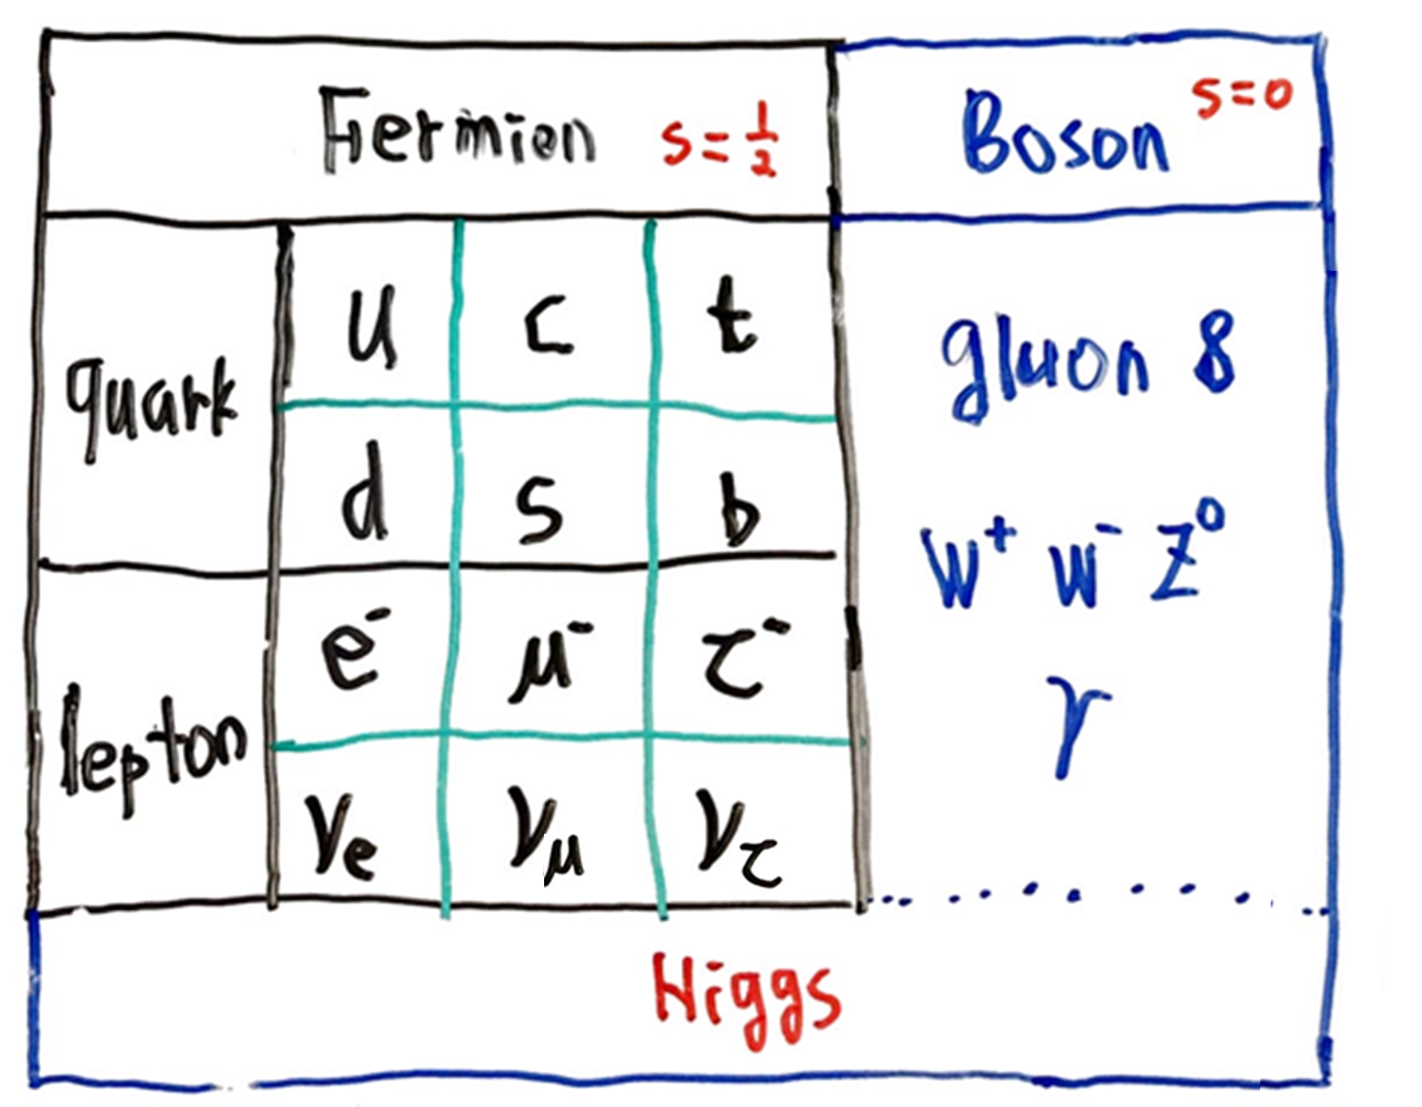 Fermion s=½ Boson s=0
quark
u c t
d s b
gluon 8
W⁺ W⁻ Z⁰
γ
lepton
e⁻ μ⁻ τ⁻
νe νμ ντ
Higgs